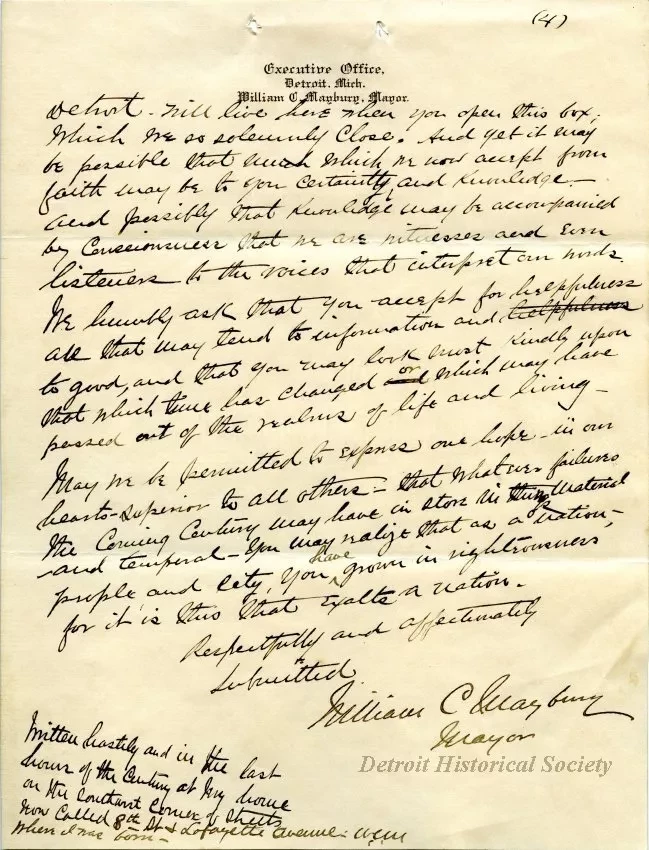 (4)
Executive Office,
Detroit, Mich.
William C. Maybury, Mayor.
Detroit - will live here when you open this box,
which we so solemnly close. And yet it may
be possible that much which we now accept from
faith may be to you certainty, and knowledge -
and possibly that knowledge may be accompanied
by consciousness that we are witnesses and even
listeners to the voices that interpret our words.
We humbly ask that you accept for helpfulness
all that may tend to information and helpfulness
to good, and that you may look most kindly upon
that which time has changed or which may have
passed out of the realms of life and living -
May we be permitted to express one hope - in our
hearts - superior to all others - that whatever failures
the Coming Century may have in store in things Material
and temporal - you may realize that as a nation -
people, and city, you have grown in righteousness,
for it is this that exalts a nation.
Respectfully and affectionately
Submitted
William C Maybury
Mayor
Detroit Historical Society
Written hastily and in the last
hours of the Century at my home
on the Southwest Corner of Streets
now called 8th St & Lafayette avenue - WCM
where I was born -